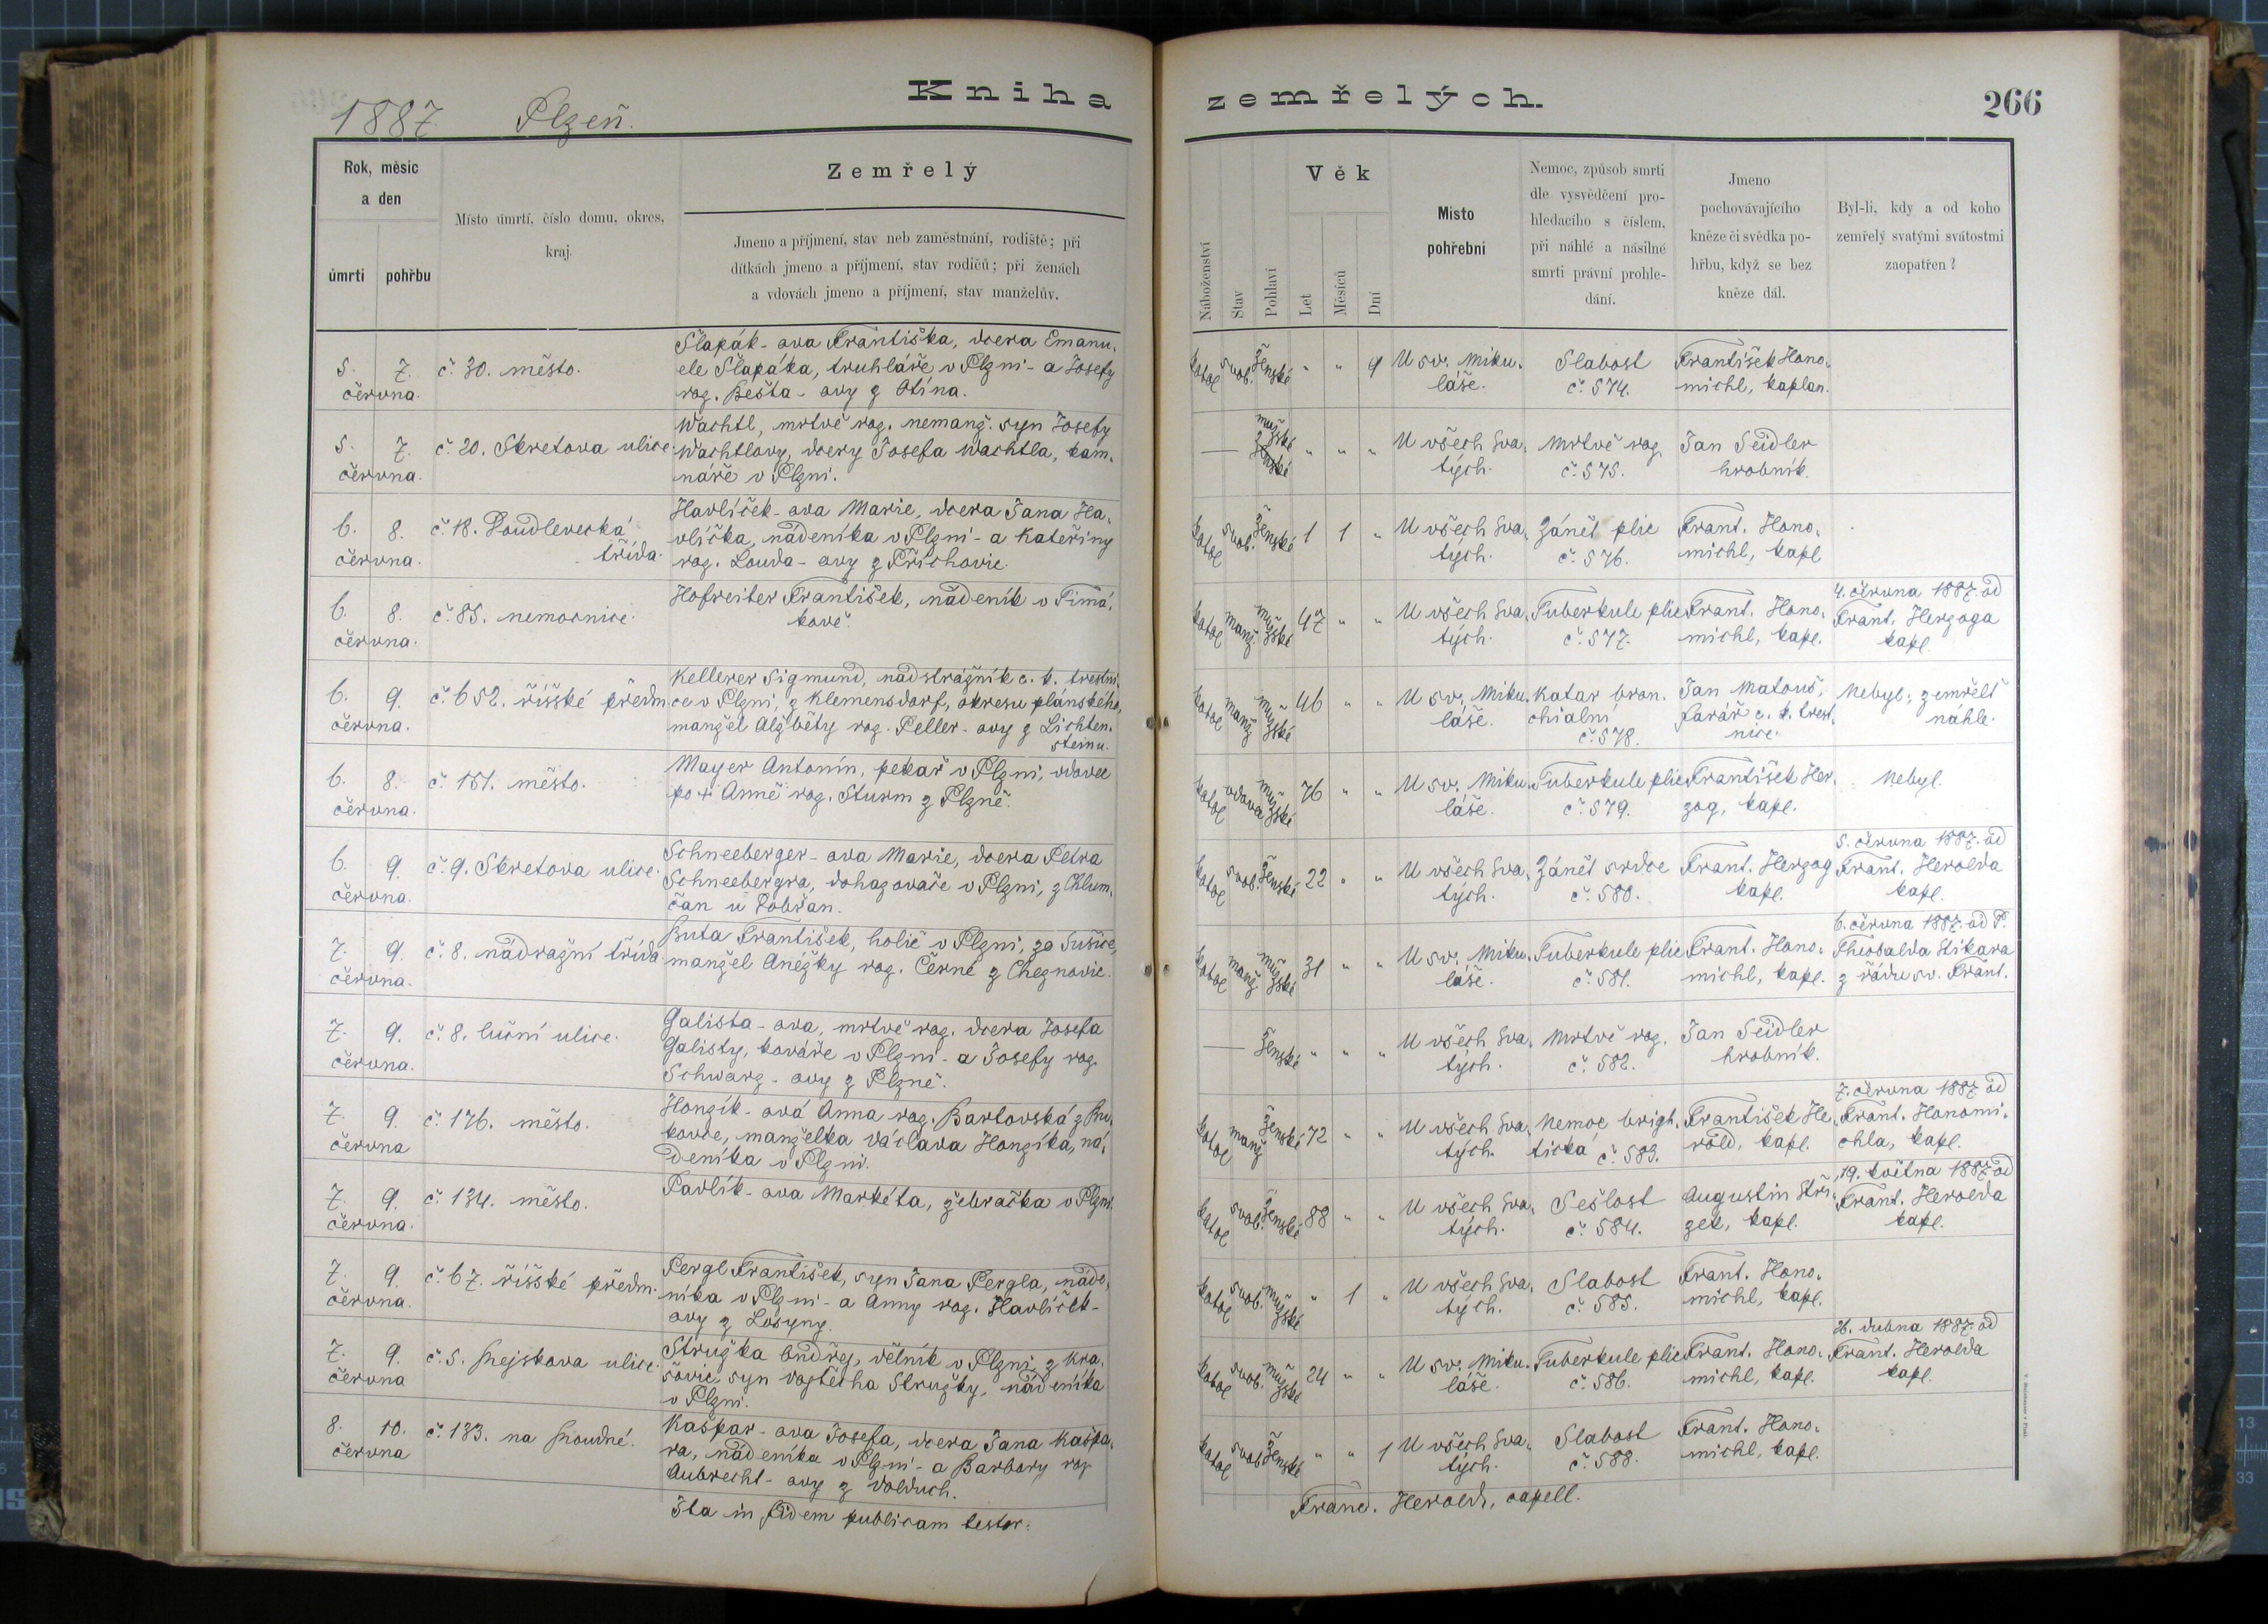 1887 Plzeň.
Kniha zemřelých.
266
Rok, měsíc
a den
úmrtí
pohřbu
Místo úmrtí, číslo domu, okres,
kraj.
Zemřelý
Jmeno a příjmení, stav neb zaměstnání, rodiště; při
dítkách jmeno a příjmení, stav rodičů; při ženách
a vdovách jmeno a příjmení, stav manželův.
Náboženství
Stav
Pohlaví
Věk
Let
Měsíců
Dní
Místo
pohřební
Nemoc, způsob smrti
dle vysvědčení pro-
hledacího s číslem,
při náhlé a násilné
smrti právní prohle-
dání.
Jmeno
pochovávajícího
kněze či svědka po-
hřbu, když se bez
kněze dál.
Byl-li, kdy a od koho
zemřelý svatými svátostmi
zaopatřen?
5. 7.
června.
č. 30. město.
Šlapák-ova Františka, dcera Emanu-
ele Šlapáka, truhláře v Plzni - a Josefy
roz. Bešta-ovy z Otína.
katol svob. ženské " " 9
U sv. Miku-
láše.
Slabost
č. 574.
František Hono-
michl, kaplan.
5. 7.
června.
č. 20. Skretova ulice.
Wachtl, mrtvě roz. nemanž. syn Josefy
Wachtlovy, dcery Josefa Wachtla, kam-
náře v Plzni.
— mužské
ženské " " "
U všech Sva-
tých.
Mrtvě roz.
č. 575.
Jan Seidler
hrobník.
6. 8.
června.
č. 18. Doudlevecká
třída.
Havlíček-ova Marie, dcera Jana Ha-
vlíčka, nádeníka v Plzni - a Kateřiny
roz. Louda-ovy z Příchovic.
katol svob. ženské 1 1 "
U všech Sva-
tých.
Zánět plic
č. 576.
Frant. Hono-
michl, kapl
6. 8.
června.
č. 85. nemocnice.
Hofreiter František, nádeník v Timá-
kově.
katol manž. mužské 47 " "
U všech Sva-
tých.
Tuberkule plic
č. 577.
Frant. Hono-
michl, kapl.
4. června 1887. od
Frant. Herzoga
kapl.
6. 9.
června.
č. 652. říšské předm.
Kellerer Sigmund, nadstrážník c. k. trestni-
ce v Plzni, z Klemensdorf, okresu plánského,
manžel Alžběty roz. Peller-ovy z Lichten-
steinu.
katol manž mužské 46 " "
U sv. Miku-
láše.
Katar bron-
chialní
č. 578.
Jan Matouš,
farář c. k. trest-
nice.
Nebyl; zemřelť
náhle.
6. 8.
června.
č. 151. město.
Mayer Antonín, pekař v Plzni, vdovec
po + Anně roz. Sturm z Plzně.
katol vdova mužské 76 " "
U sv. Miku-
láše.
Tuberkule plic
č. 579.
František Her-
zog, kapl.
Nebyl.
6. 9.
června.
č. 9. Skretova ulice.
Schneeberger-ova Marie, dcera Petra
Schneebergra, dohazovače v Plzni, z Chlum-
čan u Dobřan.
katol svob. ženské 22 " "
U všech Sva-
tých.
Zánět srdce
č. 580.
Frant. Herzog
kapl.
5. června 1887. od
Frant. Herolda
kapl.
7. 9.
června.
č. 8. nádražní třída
Buta František, holič v Plzni, ze Sušice,
manžel Anéžky roz. Černé z Cheznovic.
katol manž. mužské 31 " "
U sv. Miku-
láše.
Tuberkule plic
č. 581.
Frant. Hono-
michl, kapl.
6. června 1887 od P.
Theobalda Stikara
z řádu sv. Frant.
7. 9.
června.
č. 8. luční ulice.
Galista-ova, mrtvě roz. dcera Josefa
Galisty, kováře v Plzni - a Josefy roz.
Schwarz-ovy z Plzně.
— ženské " " "
U všech Sva-
tých.
Mrtvě roz.
č. 582.
Jan Seidler
hrobník.
7. 9.
června
č. 176. město.
Honzík-ová Anna roz. Bartovská z Bu-
kovce, manželka Václava Honzíka, ná-
deníka v Plzni.
katol manž ženské 72 " "
U všech Sva-
tých.
Nemoc brigh-
tická č. 583.
František He-
rold, kapl.
7. června 1887 od
Frant. Honomi-
chla, kapl.
7. 9.
června.
č. 134. město.
Pavlík-ova Markéta, žebračka v Plzni.
katol svob. ženské 88 " "
U všech Sva-
tých.
Sešlost
č. 584.
Augustin Stří-
zek, kapl.
19. května 1887 od
Frant. Herolda
kapl.
7. 9.
června.
č. 67. říšské předm.
Pergl František, syn Jana Pergla, náde-
níka v Plzni - a Anny roz. Havlíček-
ovy z Losyny.
katol svob. mužské " 1 "
U všech Sva-
tých.
Slabost
č. 585.
Frant. Hono-
michl, kapl.
7. 9.
června
č. 5. Hejskova ulice.
Stružka Ondřej, dělník v Plzni, z Kra-
šovic, syn Vojtěcha Stružky, nádeníka
v Plzni.
katol svob. mužské 24 " "
U sv. Miku-
láše.
Tuberkule plic
č. 586.
Frant. Hono-
michl, kapl.
26. dubna 1887. od
Frant. Herolda
kapl.
8. 10.
června
č. 133. na Proudné.
Kašpar-ova Josefa, dcera Jana Kašpa-
ra, nádeníka v Plzni - a Barbory roz
Aubrecht-ovy z Volduch.
katol svob ženské " " 1
U všech Sva-
tých.
Slabost
č. 588.
Frant. Hono-
michl, kapl.
Ita in fidem publicam testor:
Franc. Herold, capell.